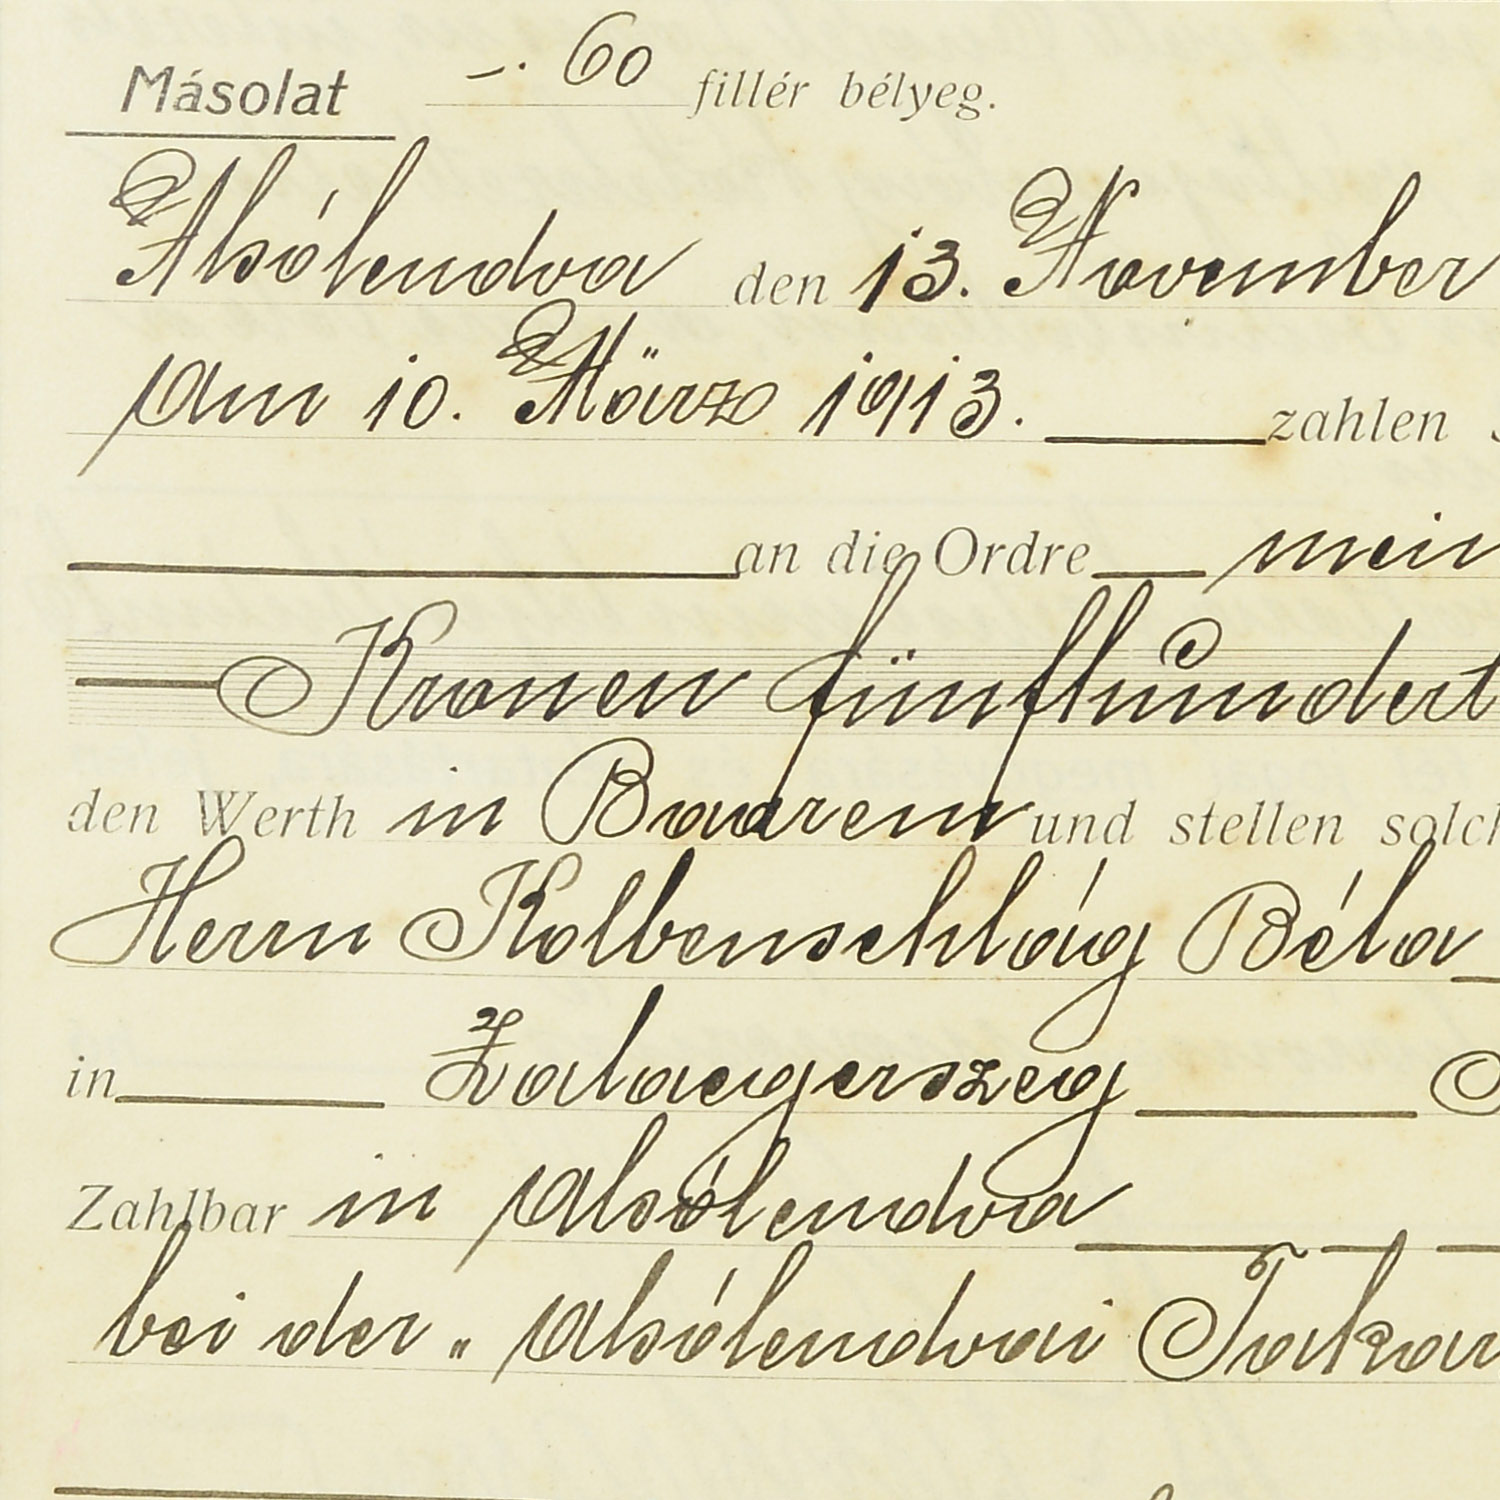 Másolat –. 60 fillér bélyeg.
Alsólendva den 13. November
Am 10. März 1913. zahlen
an die Ordre mein
Kronen fünfhundert
den Werth in Baarem und stellen solch
Herrn Kolbenschlág Béla
in Zalaegerszeg
Zahlbar in Alsólendva
bei der „Alsólendvai Takar